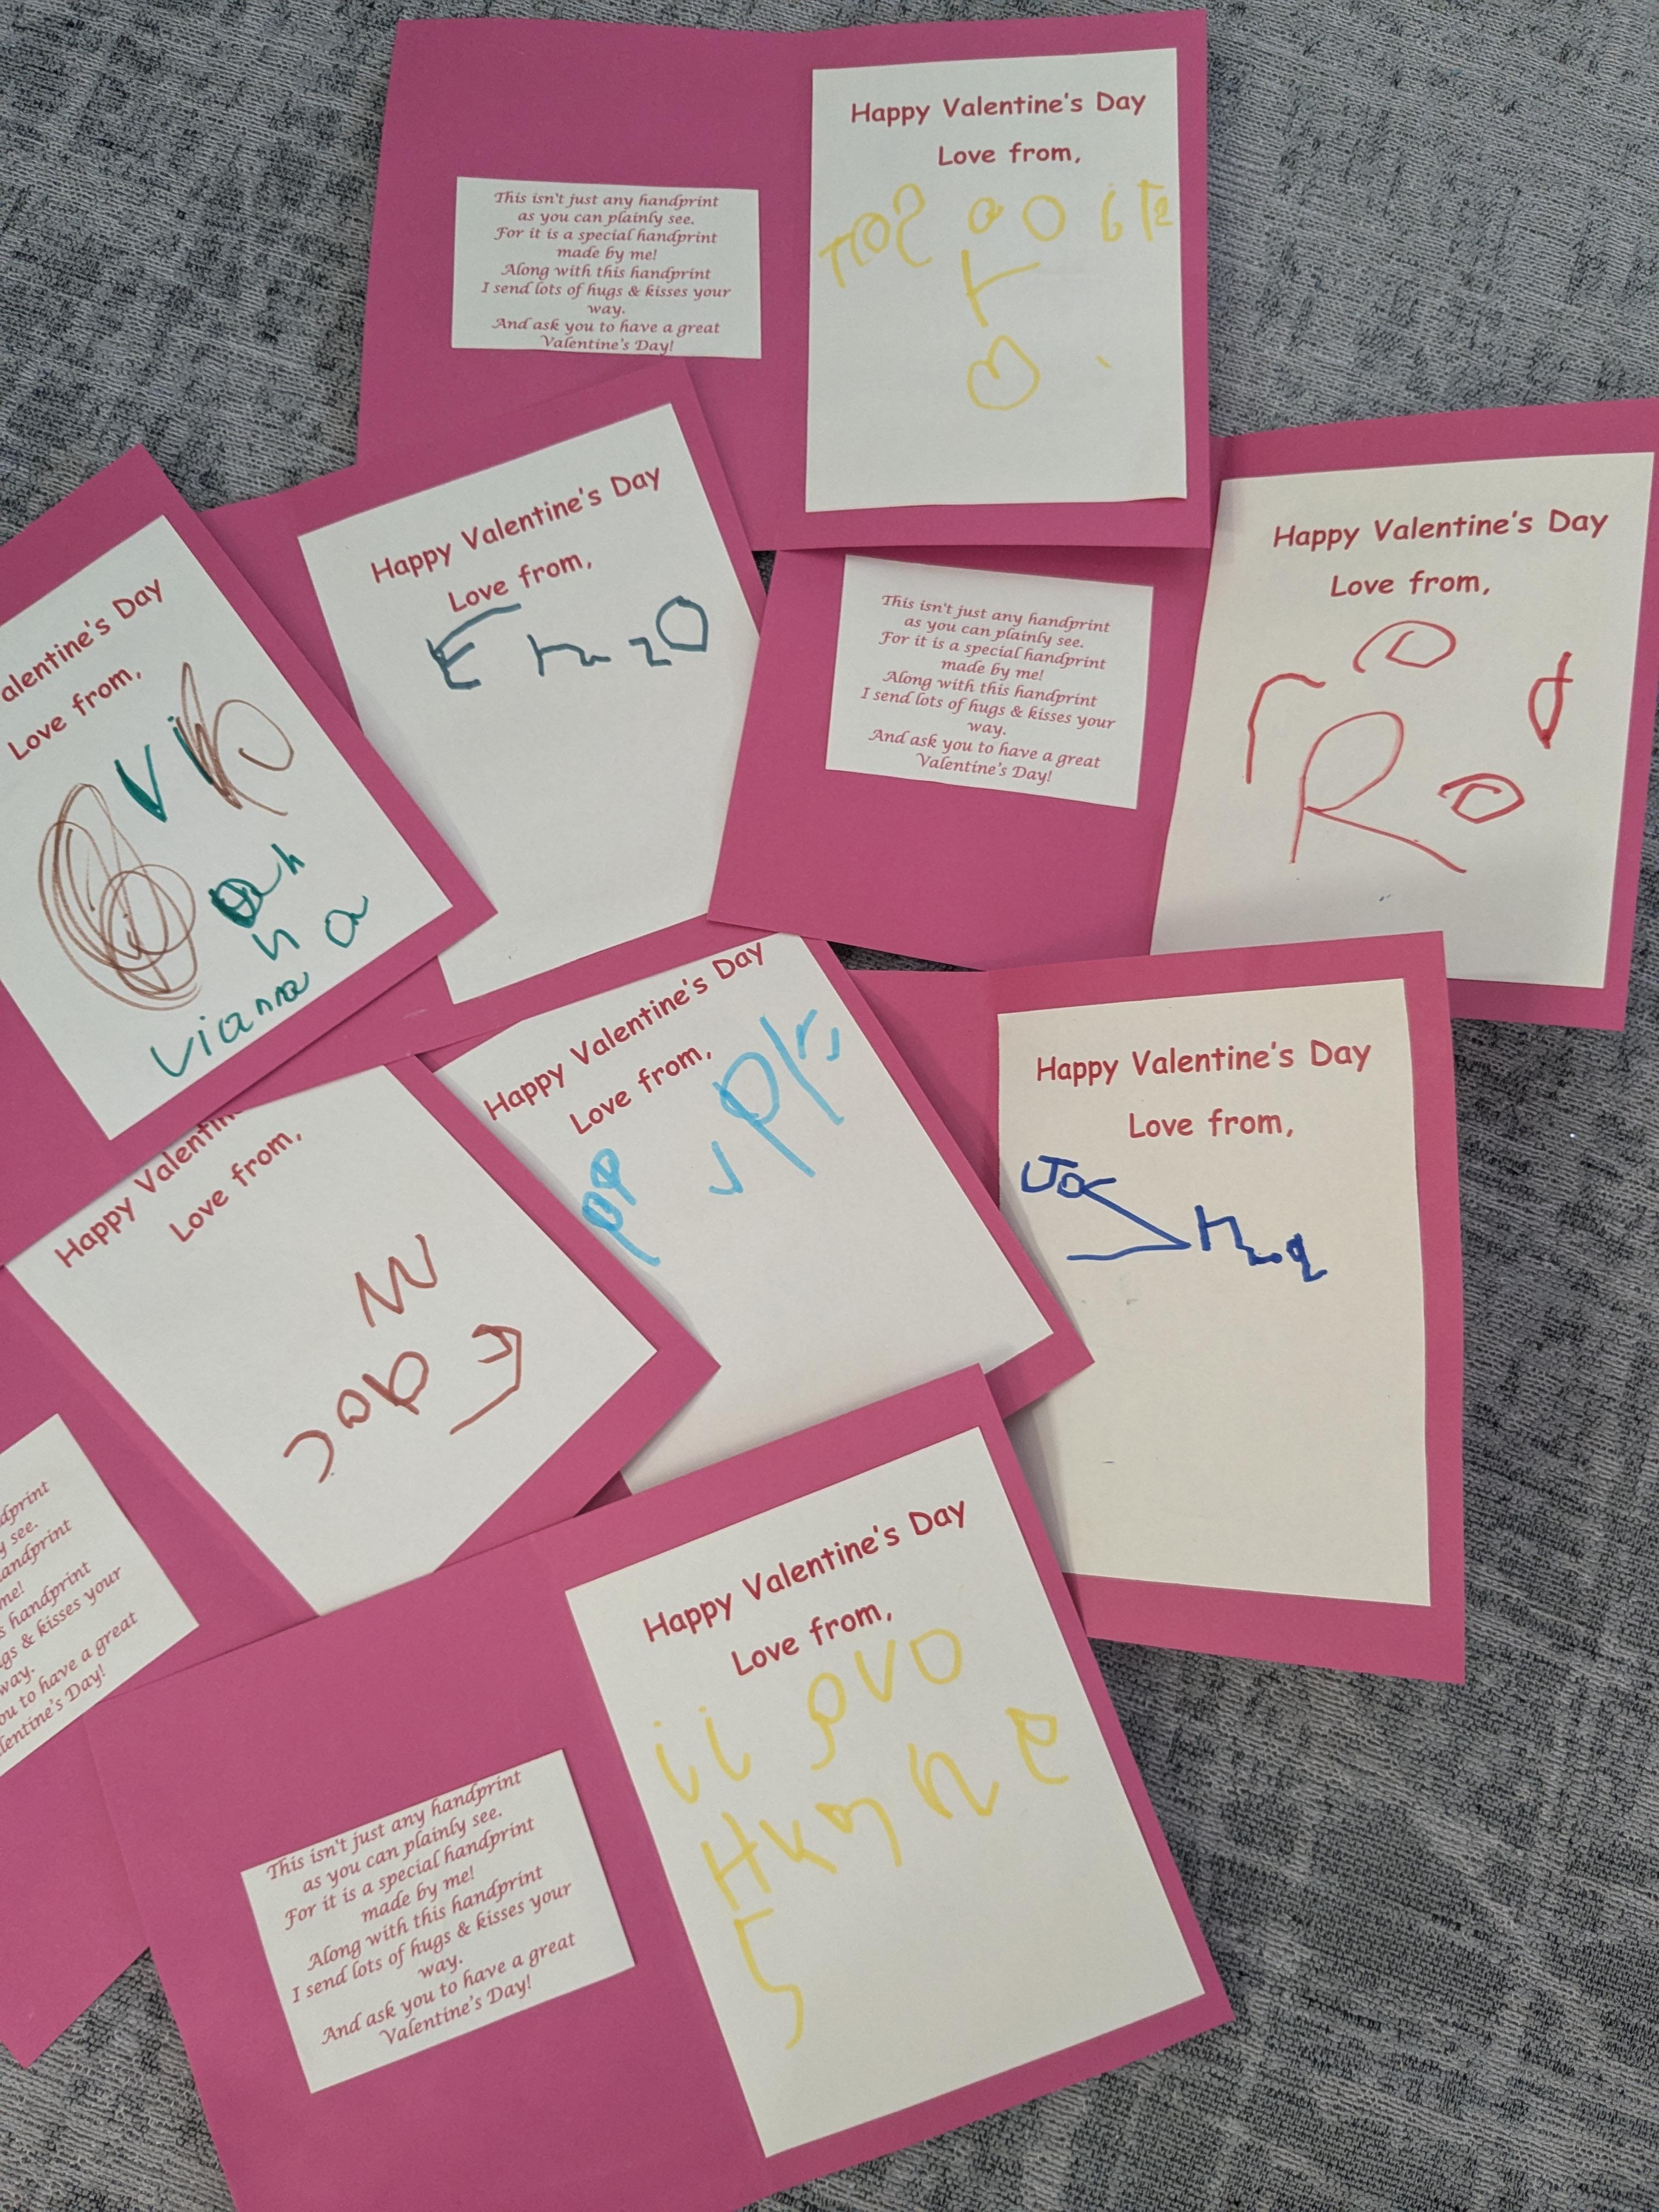 This isn't just any handprint
as you can plainly see.
For it is a special handprint
made by me!
Along with this handprint
I send lots of hugs & kisses your
way.
And ask you to have a great
Valentine's Day!
Happy Valentine's Day
Love from,
Happy Valentine's Day
Love from,
Enzo
alentine's Day
Love from,
Vi
n a
vianna
This isn't just any handprint
as you can plainly see.
For it is a special handprint
made by me!
Along with this handprint
I send lots of hugs & kisses your
way.
And ask you to have a great
Valentine's Day!
Happy Valentine's Day
Love from,
R
Happy Valentine's Day
Love from,
Happy Valentine's Day
Love from,
Happy Valentin
Love from,
dprint
y see.
andprint
me!
s handprint
gs & kisses your
way.
ou to have a great
lentine's Day!
This isn't just any handprint
as you can plainly see.
For it is a special handprint
made by me!
Along with this handprint
I send lots of hugs & kisses your
way.
And ask you to have a great
Valentine's Day!
Happy Valentine's Day
Love from,